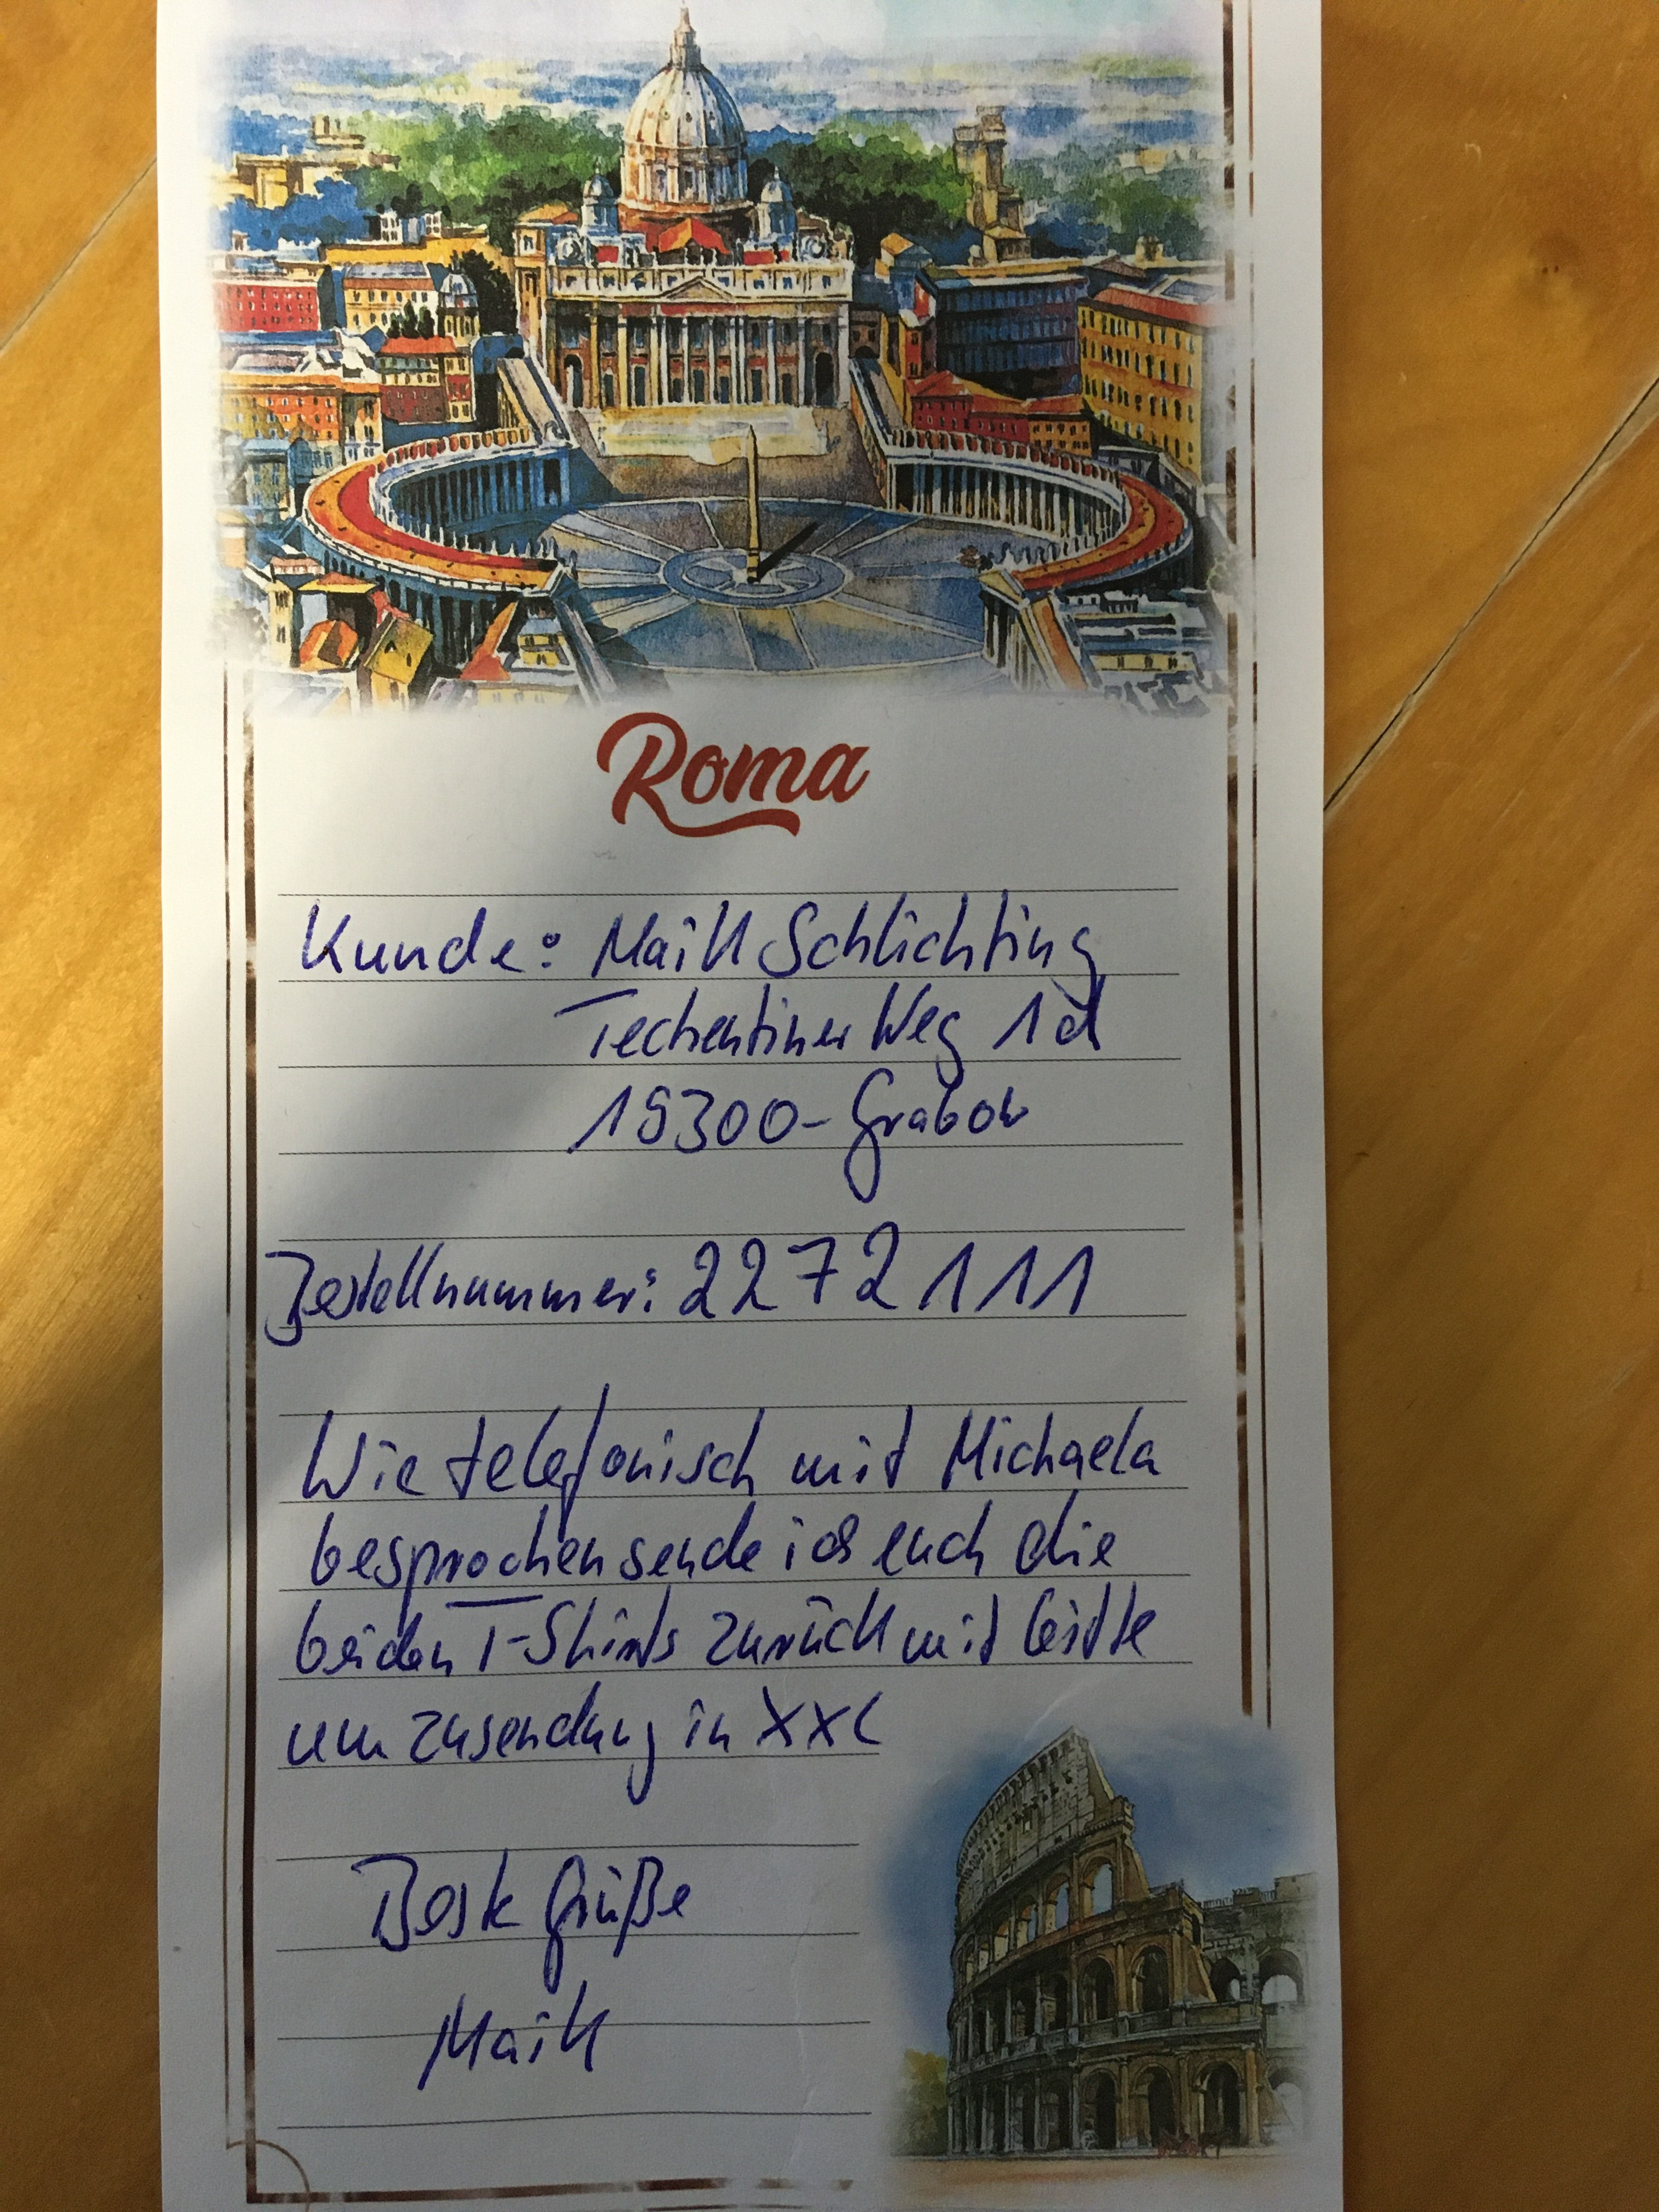 Roma
Kunde: Maik Schlichting
Techentiner Weg 1d
19300-Grabow
Bestellnummer: 2272111
Wie telefonisch mit Michaela
besprochen sende ich euch die
beiden T-Shirts zurück mit bitte
um zusendung in XXL
Beste Grüße
Maik